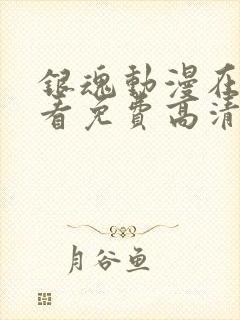 銀魂動漫在
看免費高清
月谷鱼